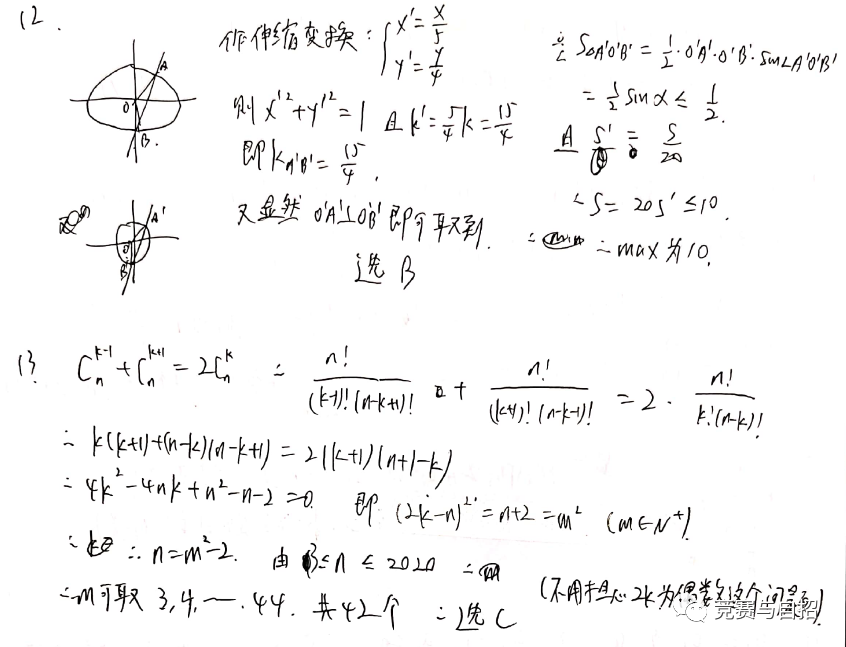 12.
作伸缩变换: { x' = x/5
y' = y/4
则 x'² + y'² = 1 且 k' = 5/4 k = 15/4
即 k_A'B' = 15/4 .
又显然 O'A'⊥O'B' 即可取到.
选 B
∴ S△A'O'B' = 1/2 · O'A' · O'B' · sin∠A'O'B'
= 1/2 sin α ≤ 1/2.
且 S' = S/20
∴ S = 20S' ≤ 10.
∴ max 为 10.
A
O
B.
A'
O'
B'
13. C_n^{k-1} + C_n^{k+1} = 2C_n^k ∴ n!/((k-1)!(n-k+1)!) + n!/((k+1)!(n-k-1)!) = 2 · n!/(k!(n-k)!)
∴ k(k+1)+(n-k)(n-k+1) = 2(k+1)(n+1-k)
∴ 4k² - 4nk + n² - n - 2 = 0. 即 (2k-n)² = n+2 = m² (m∈N⁺)
∴ n = m² - 2. 由 3 ≤ n ≤ 2020
∴ m可取 3, 4, …. 44. 共42个 ∴ 选 C (不用担心2k为偶数这个问题!)
竞赛与自招